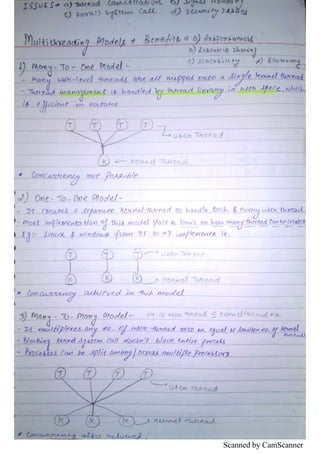 ISSUES → a) Thread Cancellation b) Signal Handling
c) fork() System Call d) Security Issues
Multithreading Models → Benefits → a) Responsiveness
b) Resource sharing
c) Scalability d) Economy
1) Many-To-One Model-
- Many user-level threads are all mapped onto a single kernel thread
- Thread management is handled by thread library in user space, which
is efficient in nature
T T T T → User Thread
K ← Kernel Thread
* Concurrency not possible.
2) One-To-One Model-
- It creates a separate kernel thread to handle each & every user thread
- Most implementation of this model place a limit on how many thread can be created
Eg:- Linux & windows from 95 to XP implements it.
T T T → User Thread
K K K → Kernel Thread
* Concurrency achieved in this model
3) Many-To-Many Model-
- It multiplexes any no. of user thread onto an equal or smaller no. of kernel
threads
- Blocking kernel system call doesn't block entire process
- Processes can be split among/across multiple processors
T T T T → User Thread
K K K → Kernel Thread
* Concurrency also achieved.
Scanned by CamScanner